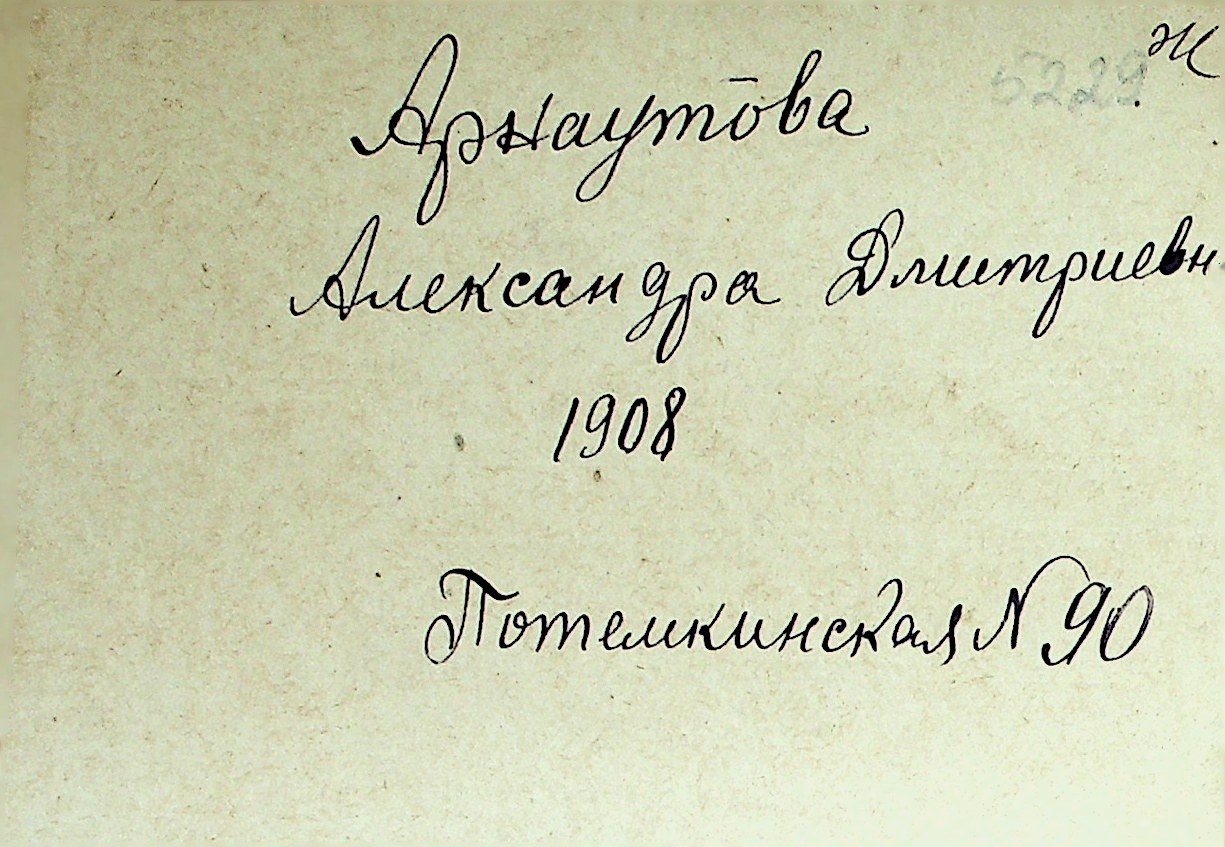 Ж
5229
Арнаутова
Александра Дмитриевн
1908
Потемкинская N 90